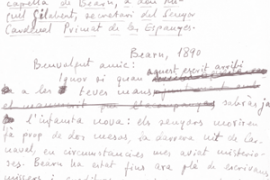 capella de Bearn, a don Mi-
quel Gilabert, secretari del Senyor
Cardenal Primat de les Espanyes.
Bearn, 1890
Benvolgut amic:
Ignor si quan aquest escrit arribi
a les teves mans
sabràs ja
l'infausta nova: els senyors moriren
fa prop de dos mesos, la darrera nit de Car-
naval, en circumstàncies més aviat misterio-
ses. Bearn ha estat fins ara plé de